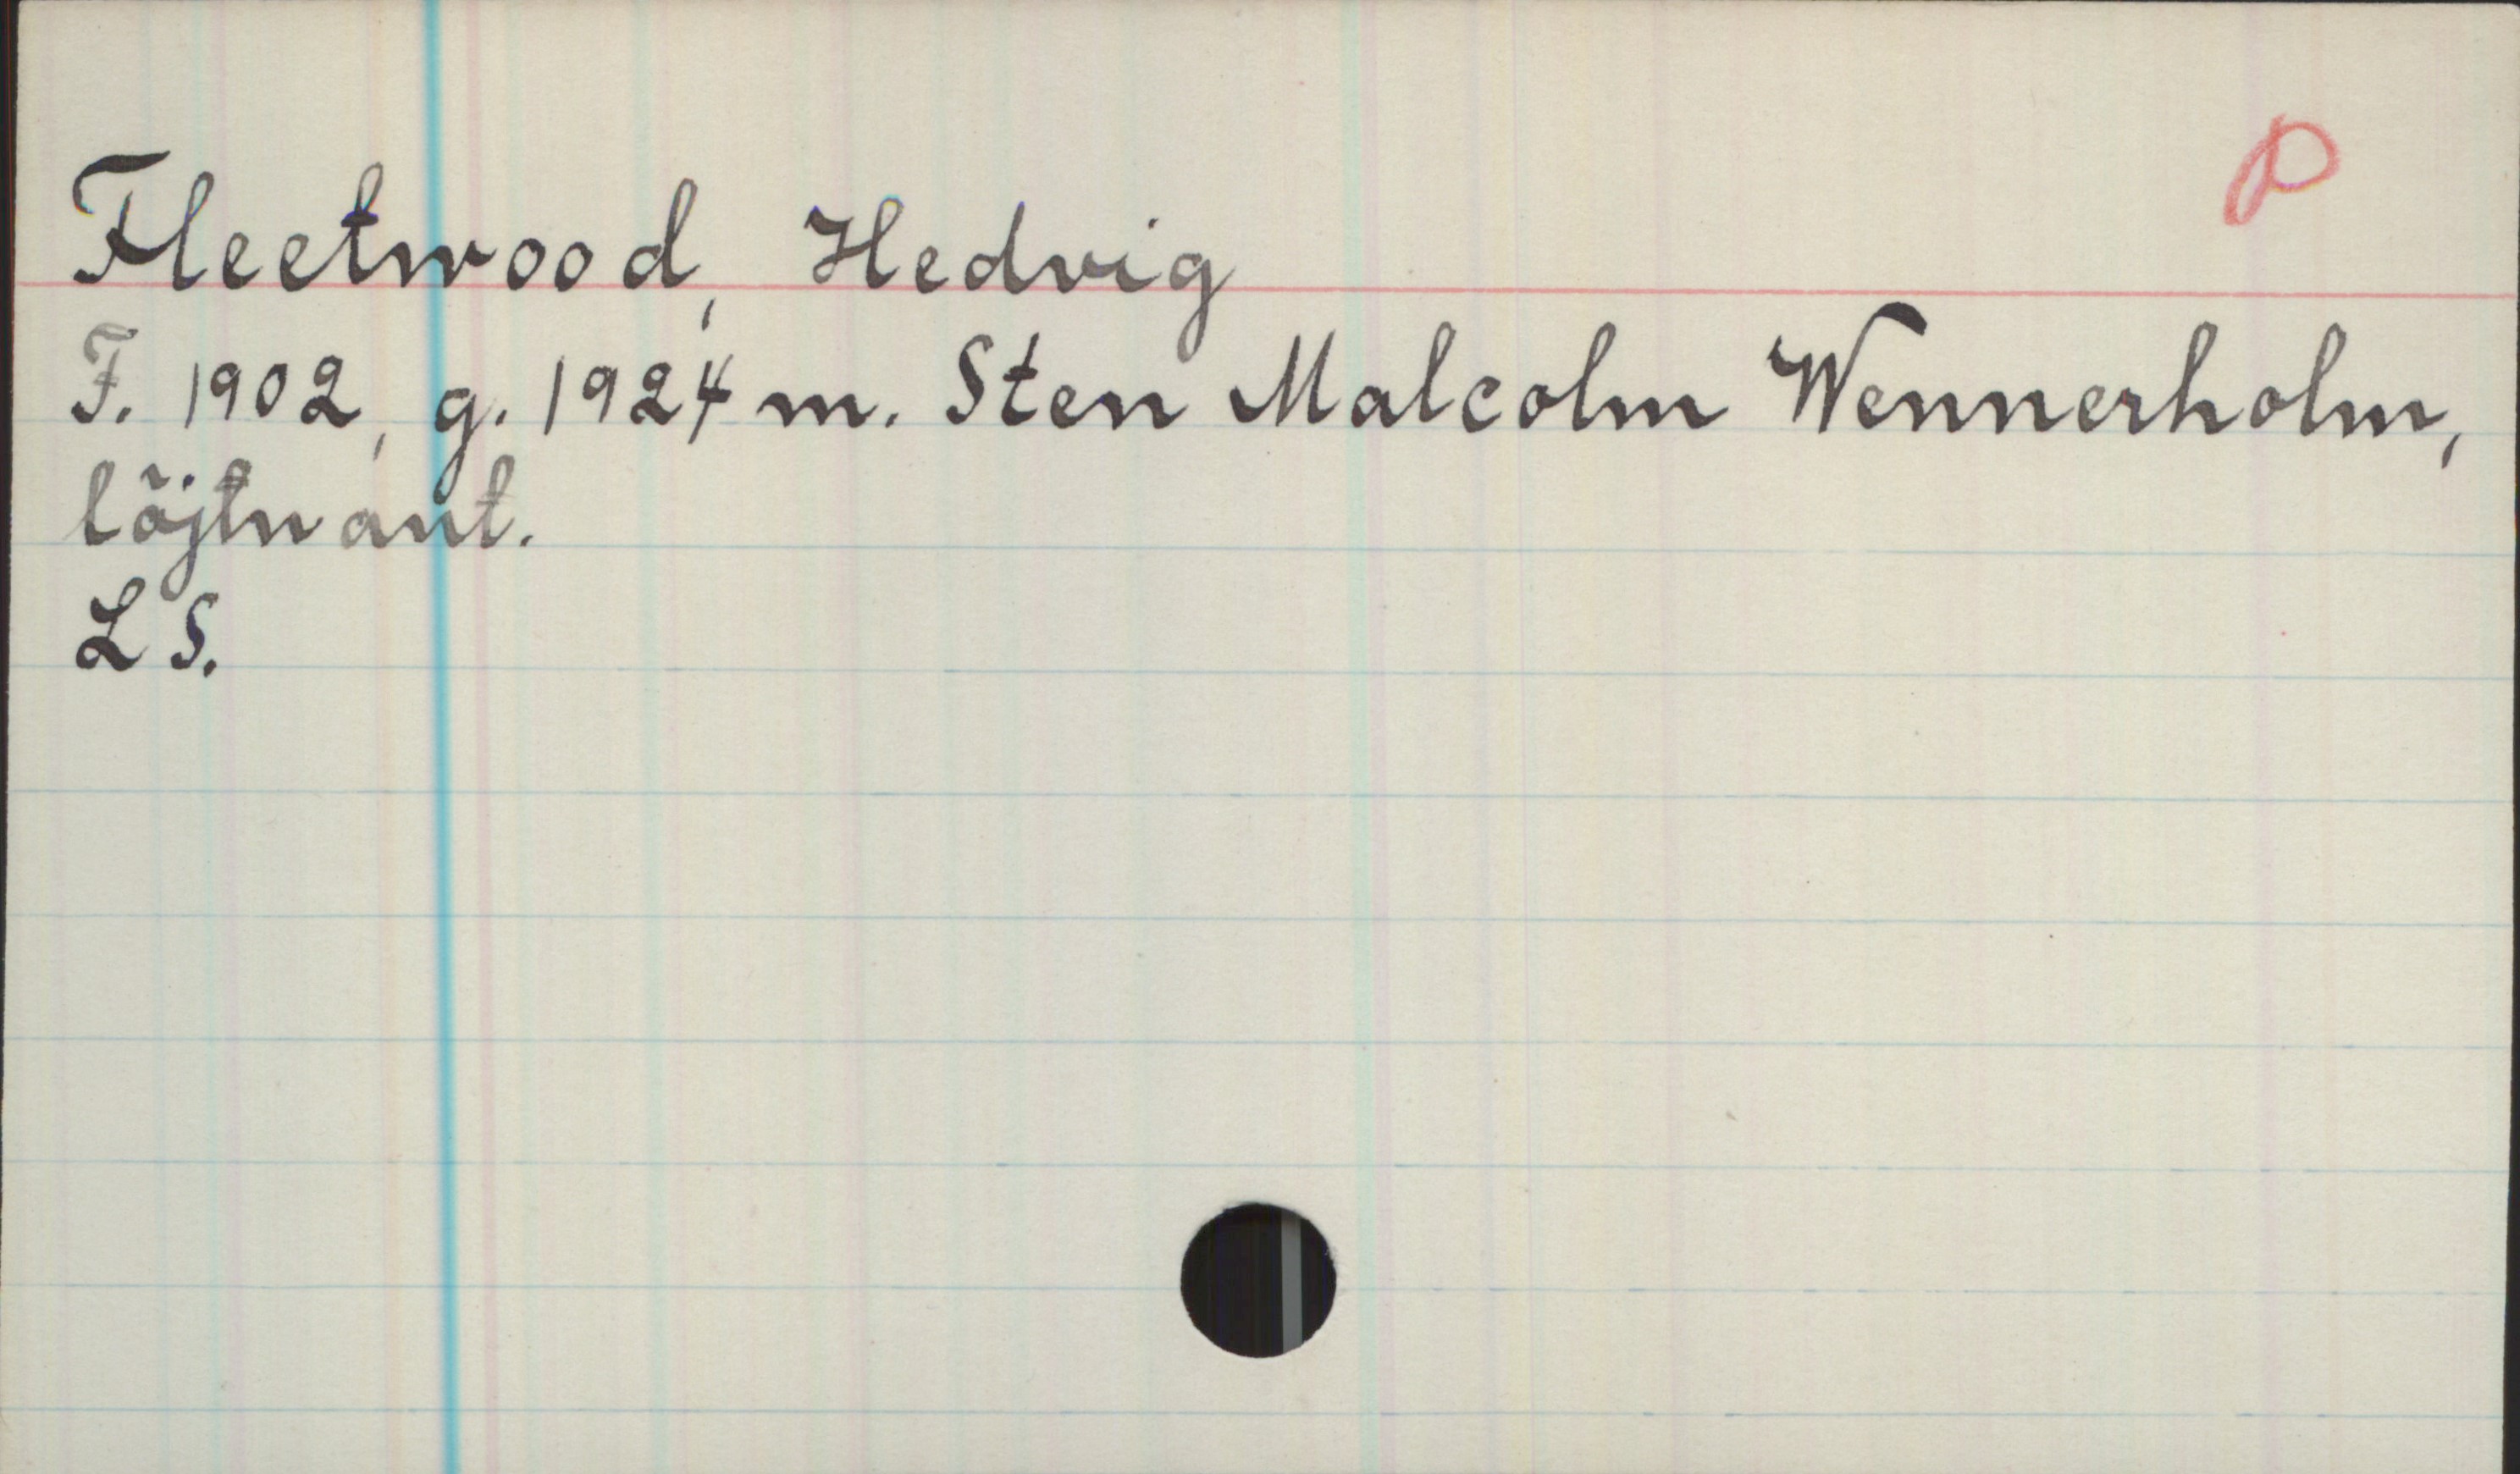 P
Fleetwood, Hedvig
F. 1902, g. 1924 m. Sten Malcolm Wennerholm,
löjtnant.
L S.